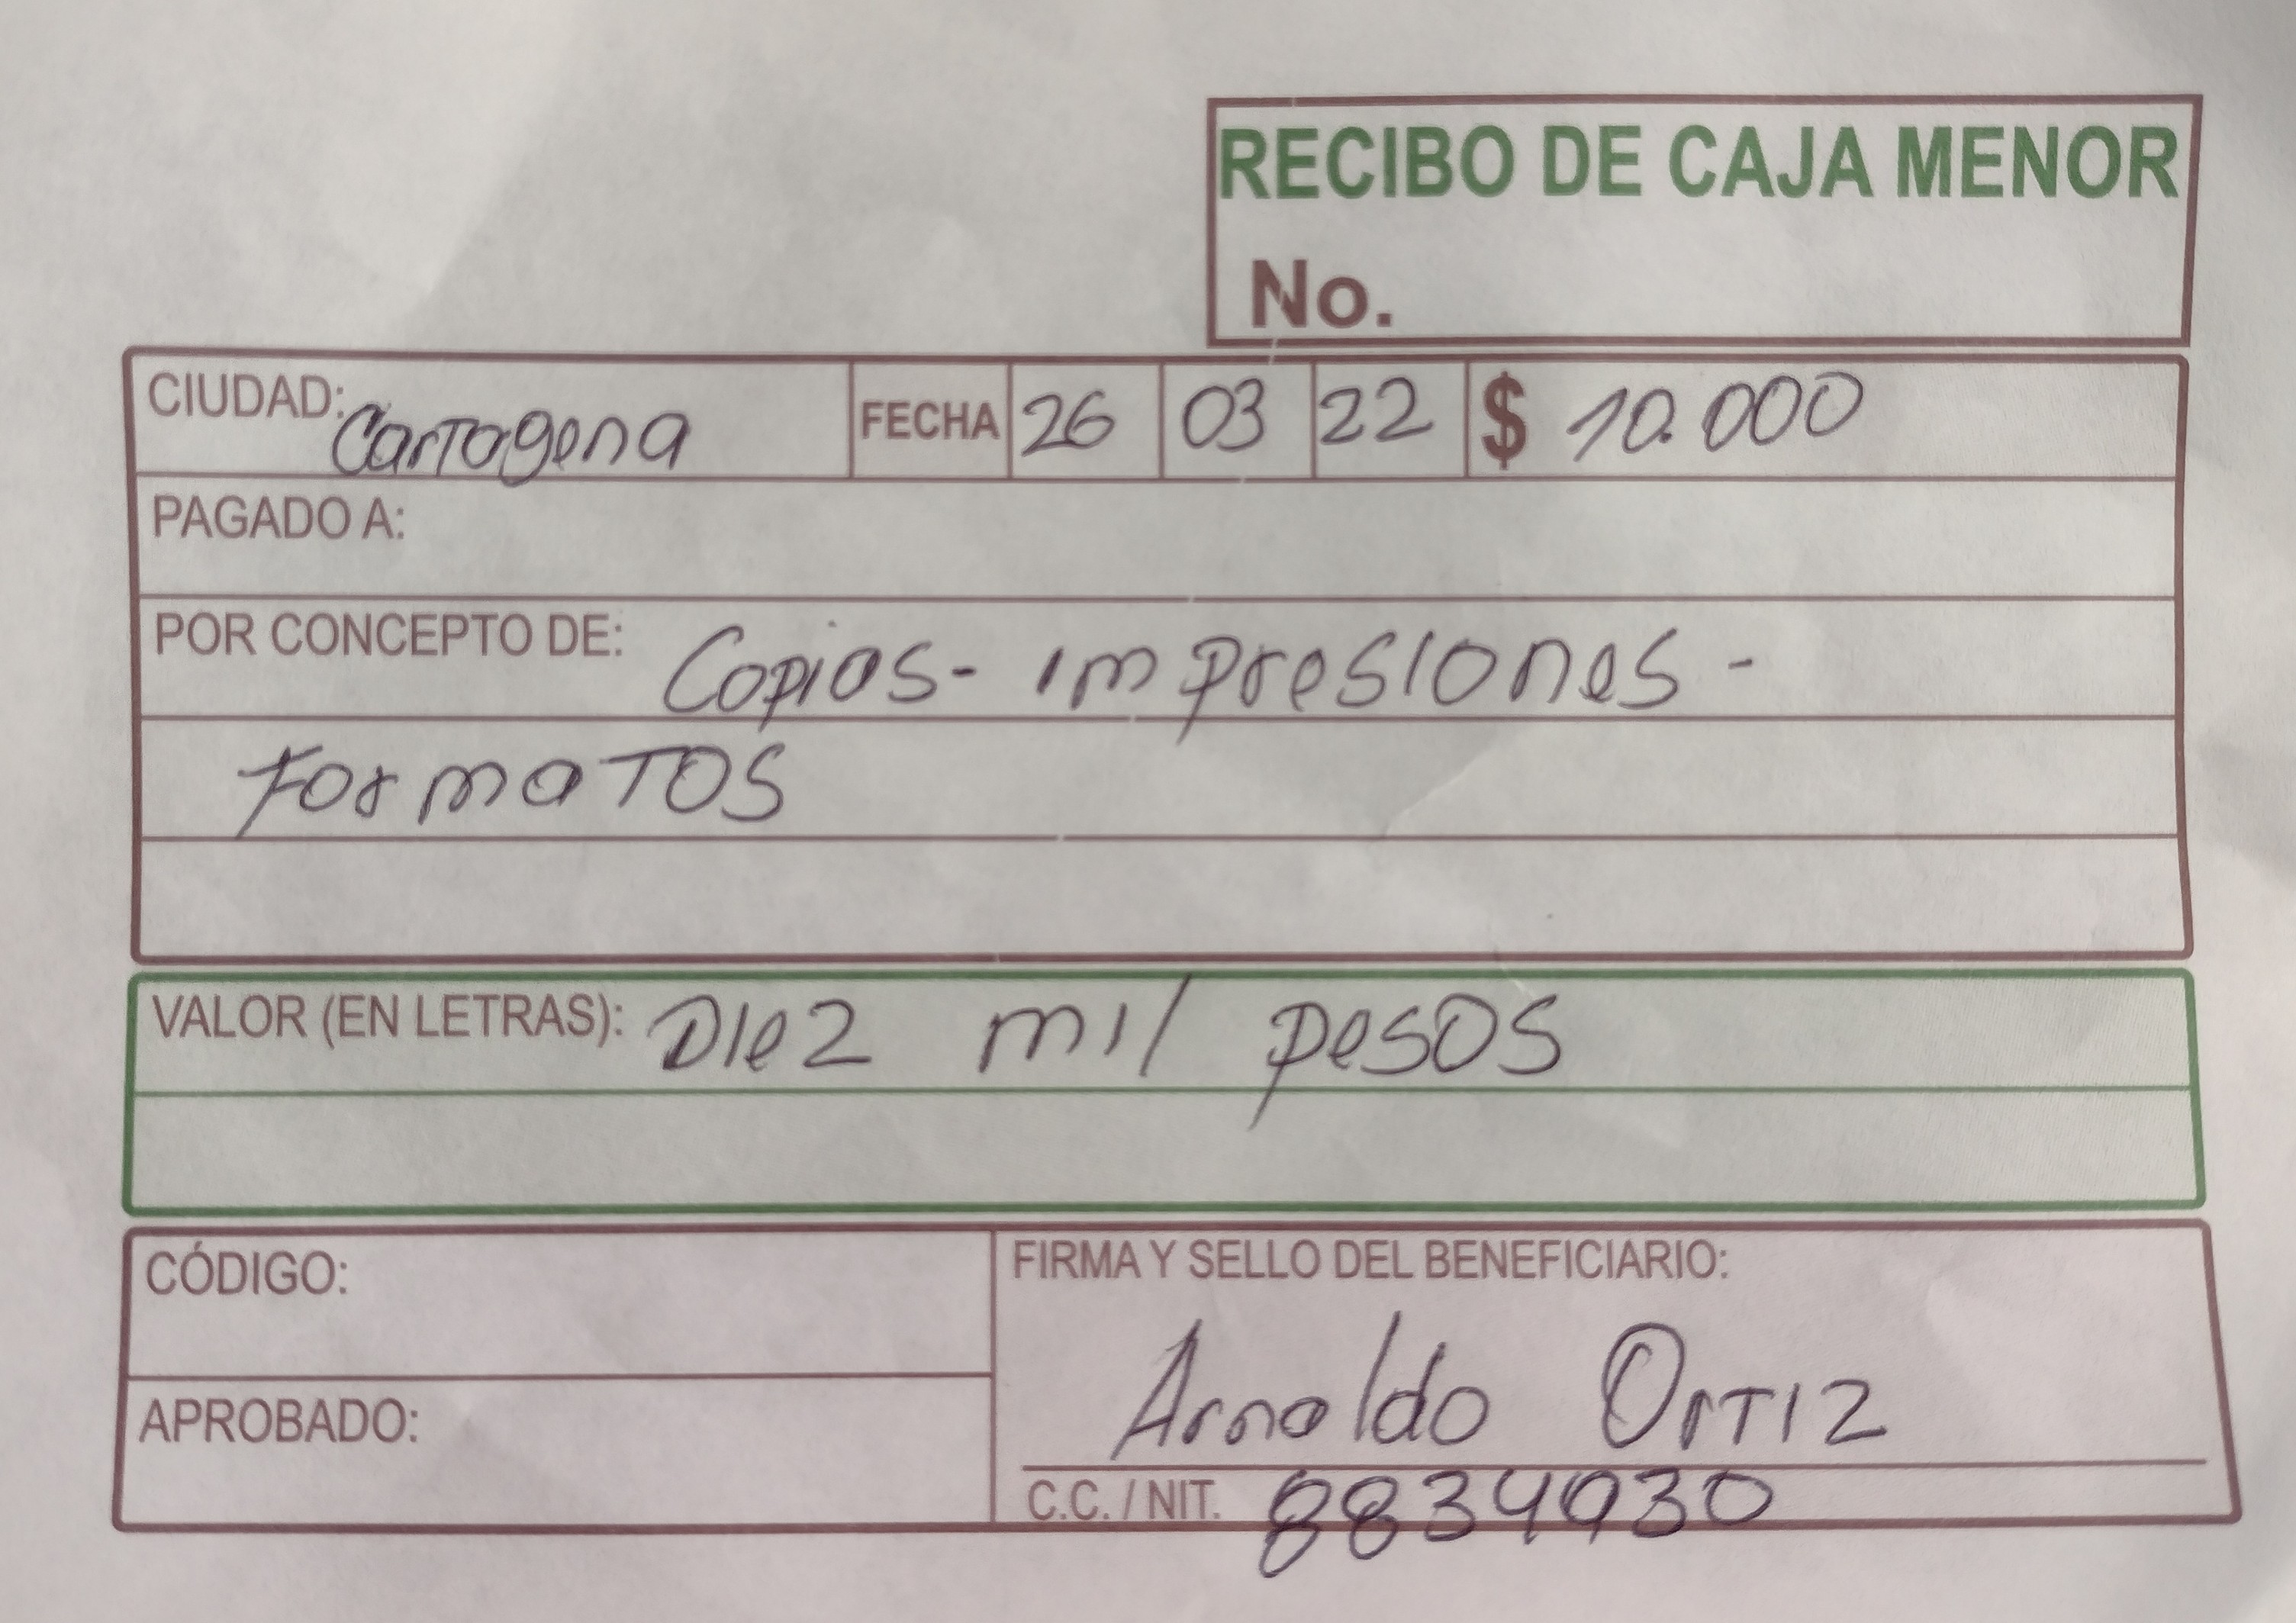 RECIBO DE CAJA MENOR
No.
CIUDAD: Cartagena FECHA 26 03 22 $ 10.000
PAGADO A:
POR CONCEPTO DE: Copias- impresiones -
Formatos
VALOR (EN LETRAS): Diez mil pesos
CÓDIGO:
FIRMA Y SELLO DEL BENEFICIARIO:
Arnoldo Ortiz
APROBADO:
C.C. / NIT. 8834930